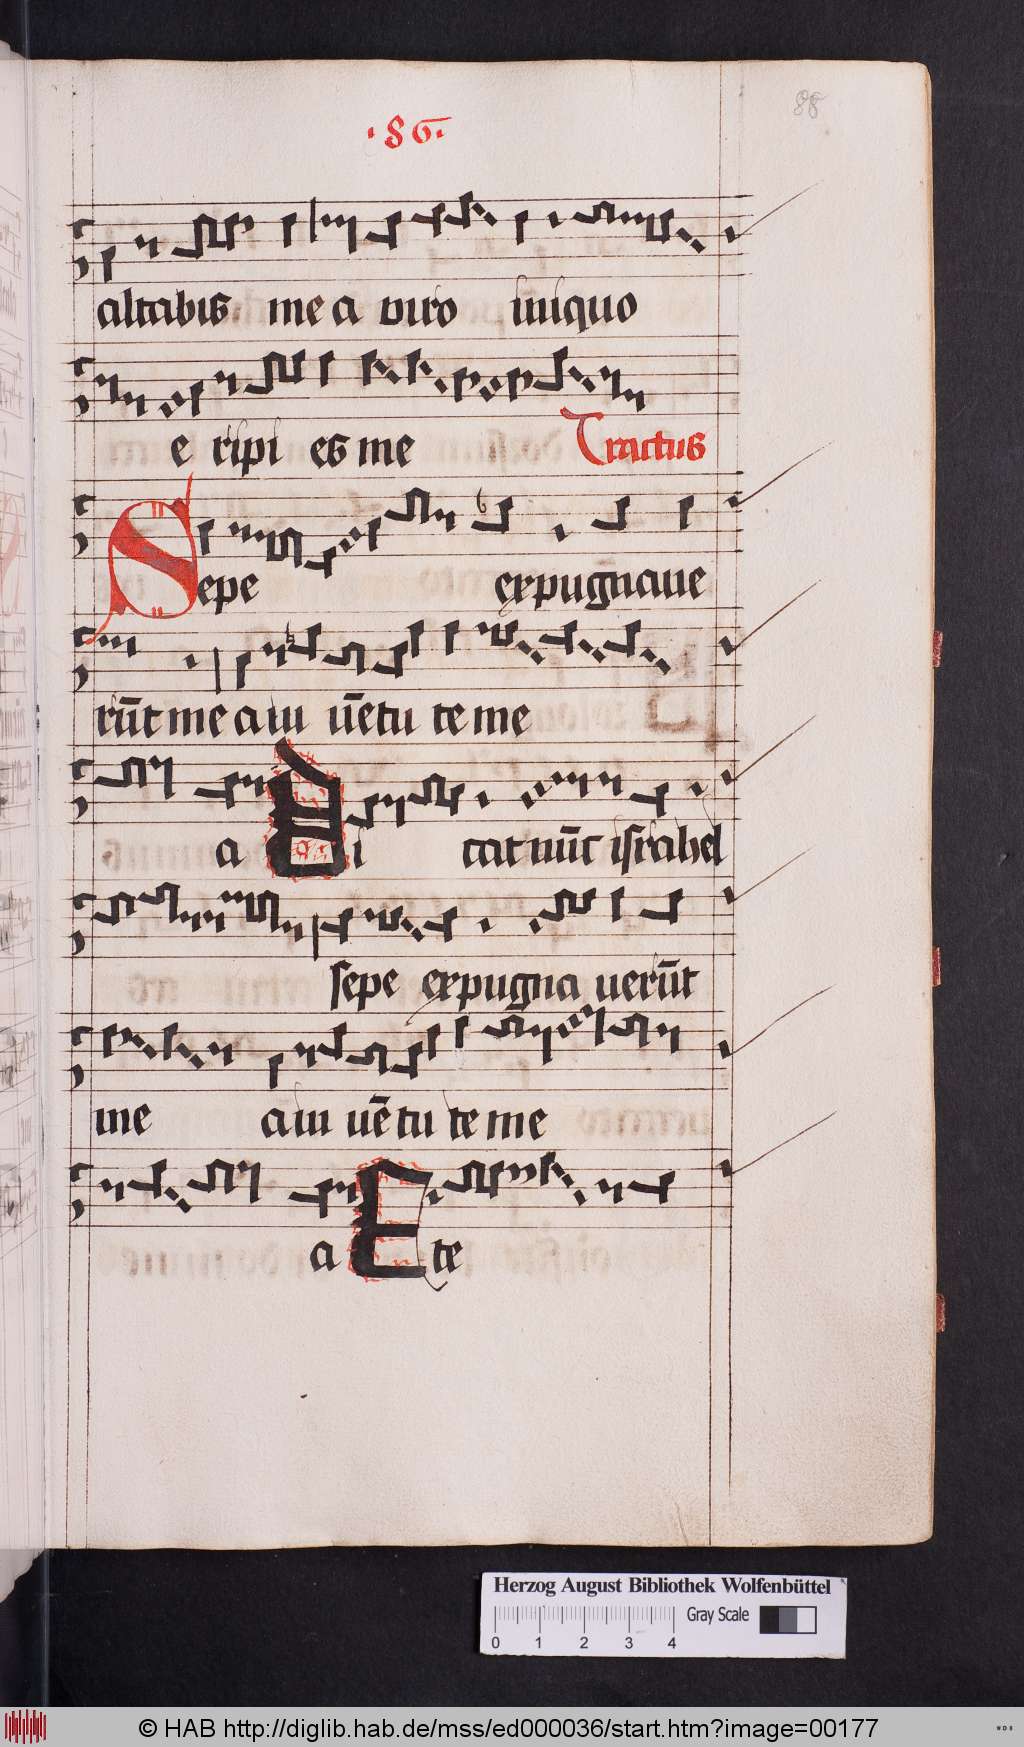 88
·86·
altabis me a viro iniquo
e ripi es me Tractus
Sepe expugnaue
rūt me a iuuētu te me
a Di cat nūc israhel
sepe expugna uerūt
me a iuuētu te me
a Ete
Herzog August Bibliothek Wolfenbüttel
Gray Scale
0 1 2 3 4
© HAB http://diglib.hab.de/mss/ed000036/start.htm?image=00177